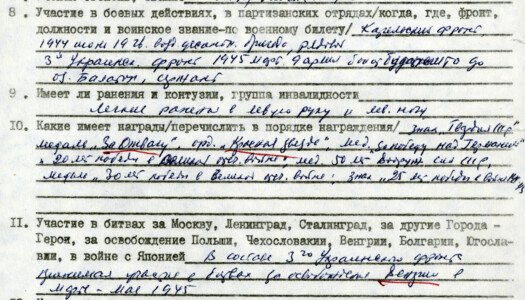 8. Участие в боевых действиях, в партизанских отрядах/когда, где, фронт,
должности и воинское звание-по военному билету/ фронт
1944 рядовой
3й Украинск. фронт 1945 март до
оз. Балатон, сержант
9. Имеет ли ранения и контузии, группа инвалидности
Легкие ранения в левую руку и лев. ногу
10. Какие имеет награды/перечислить в порядке награждения/ знак "Гвардия СССР"
медаль "За Отвагу" орд. "Красная звезда" мед. "За победу над Германией"
"20 лет победы в Великой отеч. войне" мед. 50 лет Вооруж. сил СССР,
медаль "30 лет победы в Великой отеч. войне", знак "25 лет победы в
11. Участие в битвах за Москву, Ленинград, Сталинград, за другие Города -
Герои, за освобождение Польши, Чехословакии, Венгрии, Болгарии, Югосла-
вии, в войне с Японией В составе 3го Украинского фронта
принимал участие в битвах за освобождение Венгрии в
март - мае 1945